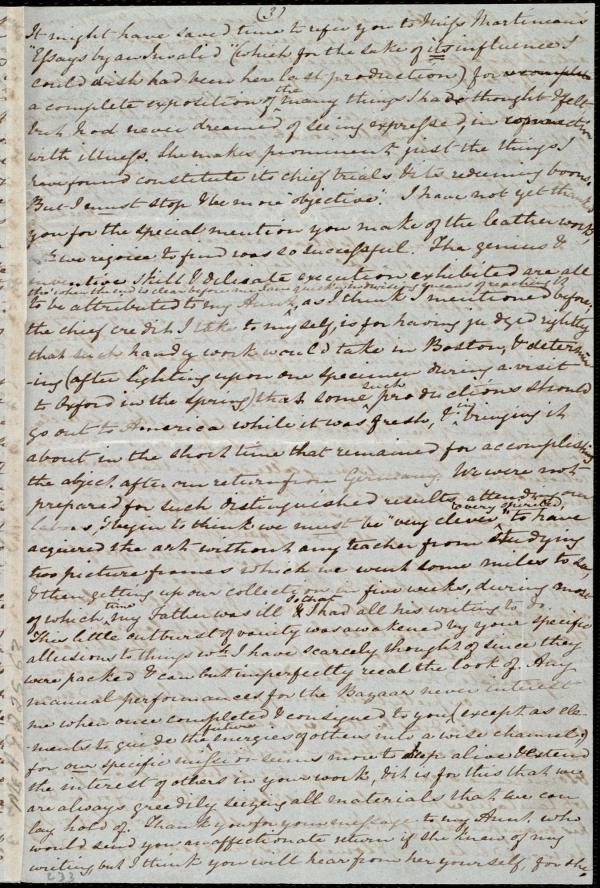 (3)
It might have saved time to refer you to Miss Martineau's
"Essays by an Invalid" (which for the sake of its influence I
could wish had been her last production) for
a complete exposition of the many things I had thought & felt
but had never dreamed of seeing expressed, in connection
with illness. She makes prominent just the things I
have found constitute its chief trials & its redeeming boons.
But I must stop & be more "objective". I have not yet thanked
you for the special mention you make of the leather work,
we rejoice to find was so successful. The genius &
inventive skill & delicate execution exhibited are all
to be attributed to my Aunt, as I think I mentioned before,
the chief credit I take to myself, is for having judged rightly
that such handy work would take in Boston, & determin-
ing (after lighting upon one specimen during a visit
to Oxford in the spring) that some such productions should
go out to America while it was fresh, & in bringing it
about in the short time that remained for accomplishing
the object after our return from Germany. We were not
prepared for such distinguished results attending our
labors, & begin to think we must be "very clever & very spirited" to have
acquired the art without any teacher from studying
two picture frames which we went some miles to see,
& then getting up our collection in five weeks, during most
of which time my Father was ill & that I had all his writing to do.
This little outburst of vanity was awakened by your specific
allusions to things wh I have scarcely thought of since they
were packed & can but imperfectly recal the look of. Any
manual performances for the Bazaar never interest
me when once completed & consigned to you (except as ele-
ments to guide the future energies of others into a wise channel)
for our specific mission seems more to keep alive & extend
the interest of others in your work, & it is for this that we
are always greedily seizing all materials that we can
lay hold of. Thank you for your message to my Aunt, who
would send you an affectionate return if she knew of my
writing, but I think you will hear from her yourself, for she
233